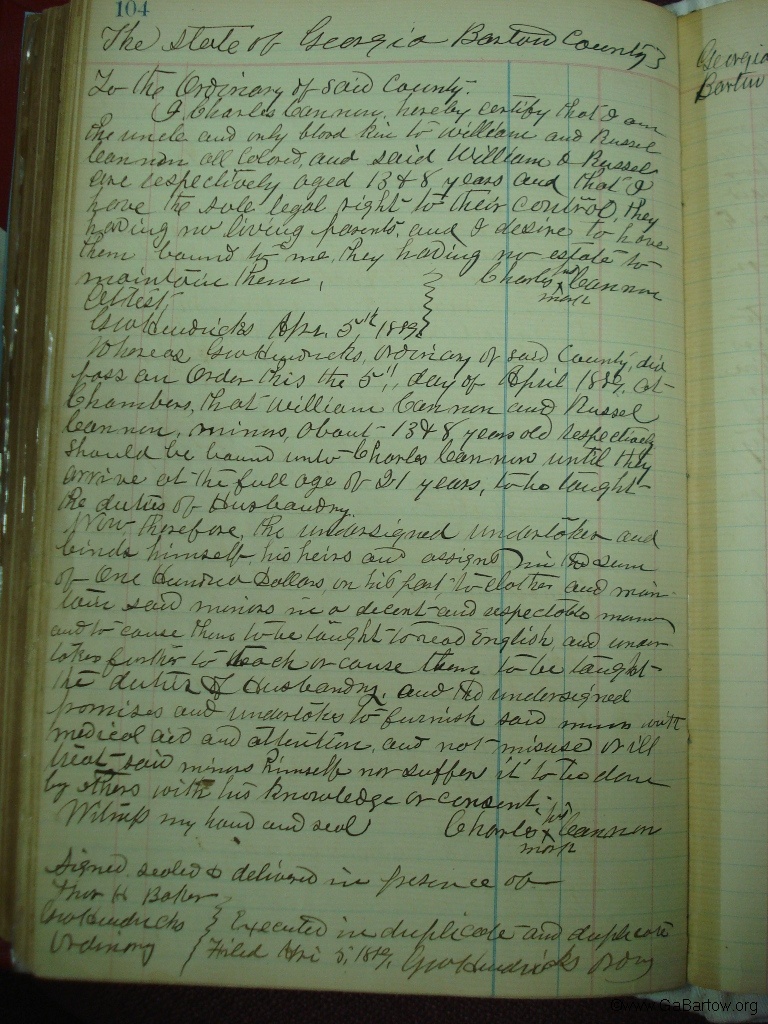 104
The State of Georgia Bartow County
To the Ordinary of said County.
I Charles Cannon, hereby certify that I am
the uncle and only blood kin to William and Russel
Cannon all Colored, and said William & Russel
are respectively aged 13 & 8 years and that I
have the sole legal right to their control, they
having no living parents, and I desire to have
them bound to me, they having no estate to
maintain them,
Charles his x mark Cannon
Attest,
Geo Hendricks Apr. 5th
Whereas Geo Hendricks, Ordinary of said County, did
pass an Order this the 5", day of April at
Chambers, that William Cannon and Russel
Cannon, minors, about 13 & 8 years old respectively
should be bound unto Charles Cannon until they
arrive at the full age of 21 years, to be taught
the duties of Husbandry.
Now, therefore, the undersigned undertakes and
binds himself, his heirs and assigns in the sum
of One Hundred Dollars, on his part, to clothe and main-
tain said minors in a decent and respectable manner
and to cause them to be taught to read English, and under
takes further to teach or cause them to be taught
the duties of Husbandry, and the undersigned
promises and undertakes to furnish said minors with
medical aid and attention, and not misuse or ill
treat said minors himself nor suffer it to be done
by others with his knowledge or consent.
Witness my hand and seal
Charles his x mark Cannon
Signed, sealed & delivered in presence of
Thos H Baker
Geo Hendricks
Ordinary
Executed in duplicate and duplicate
Filed Geo Hendricks Ordy
Georgia
Bartow
www.GaBartow.org